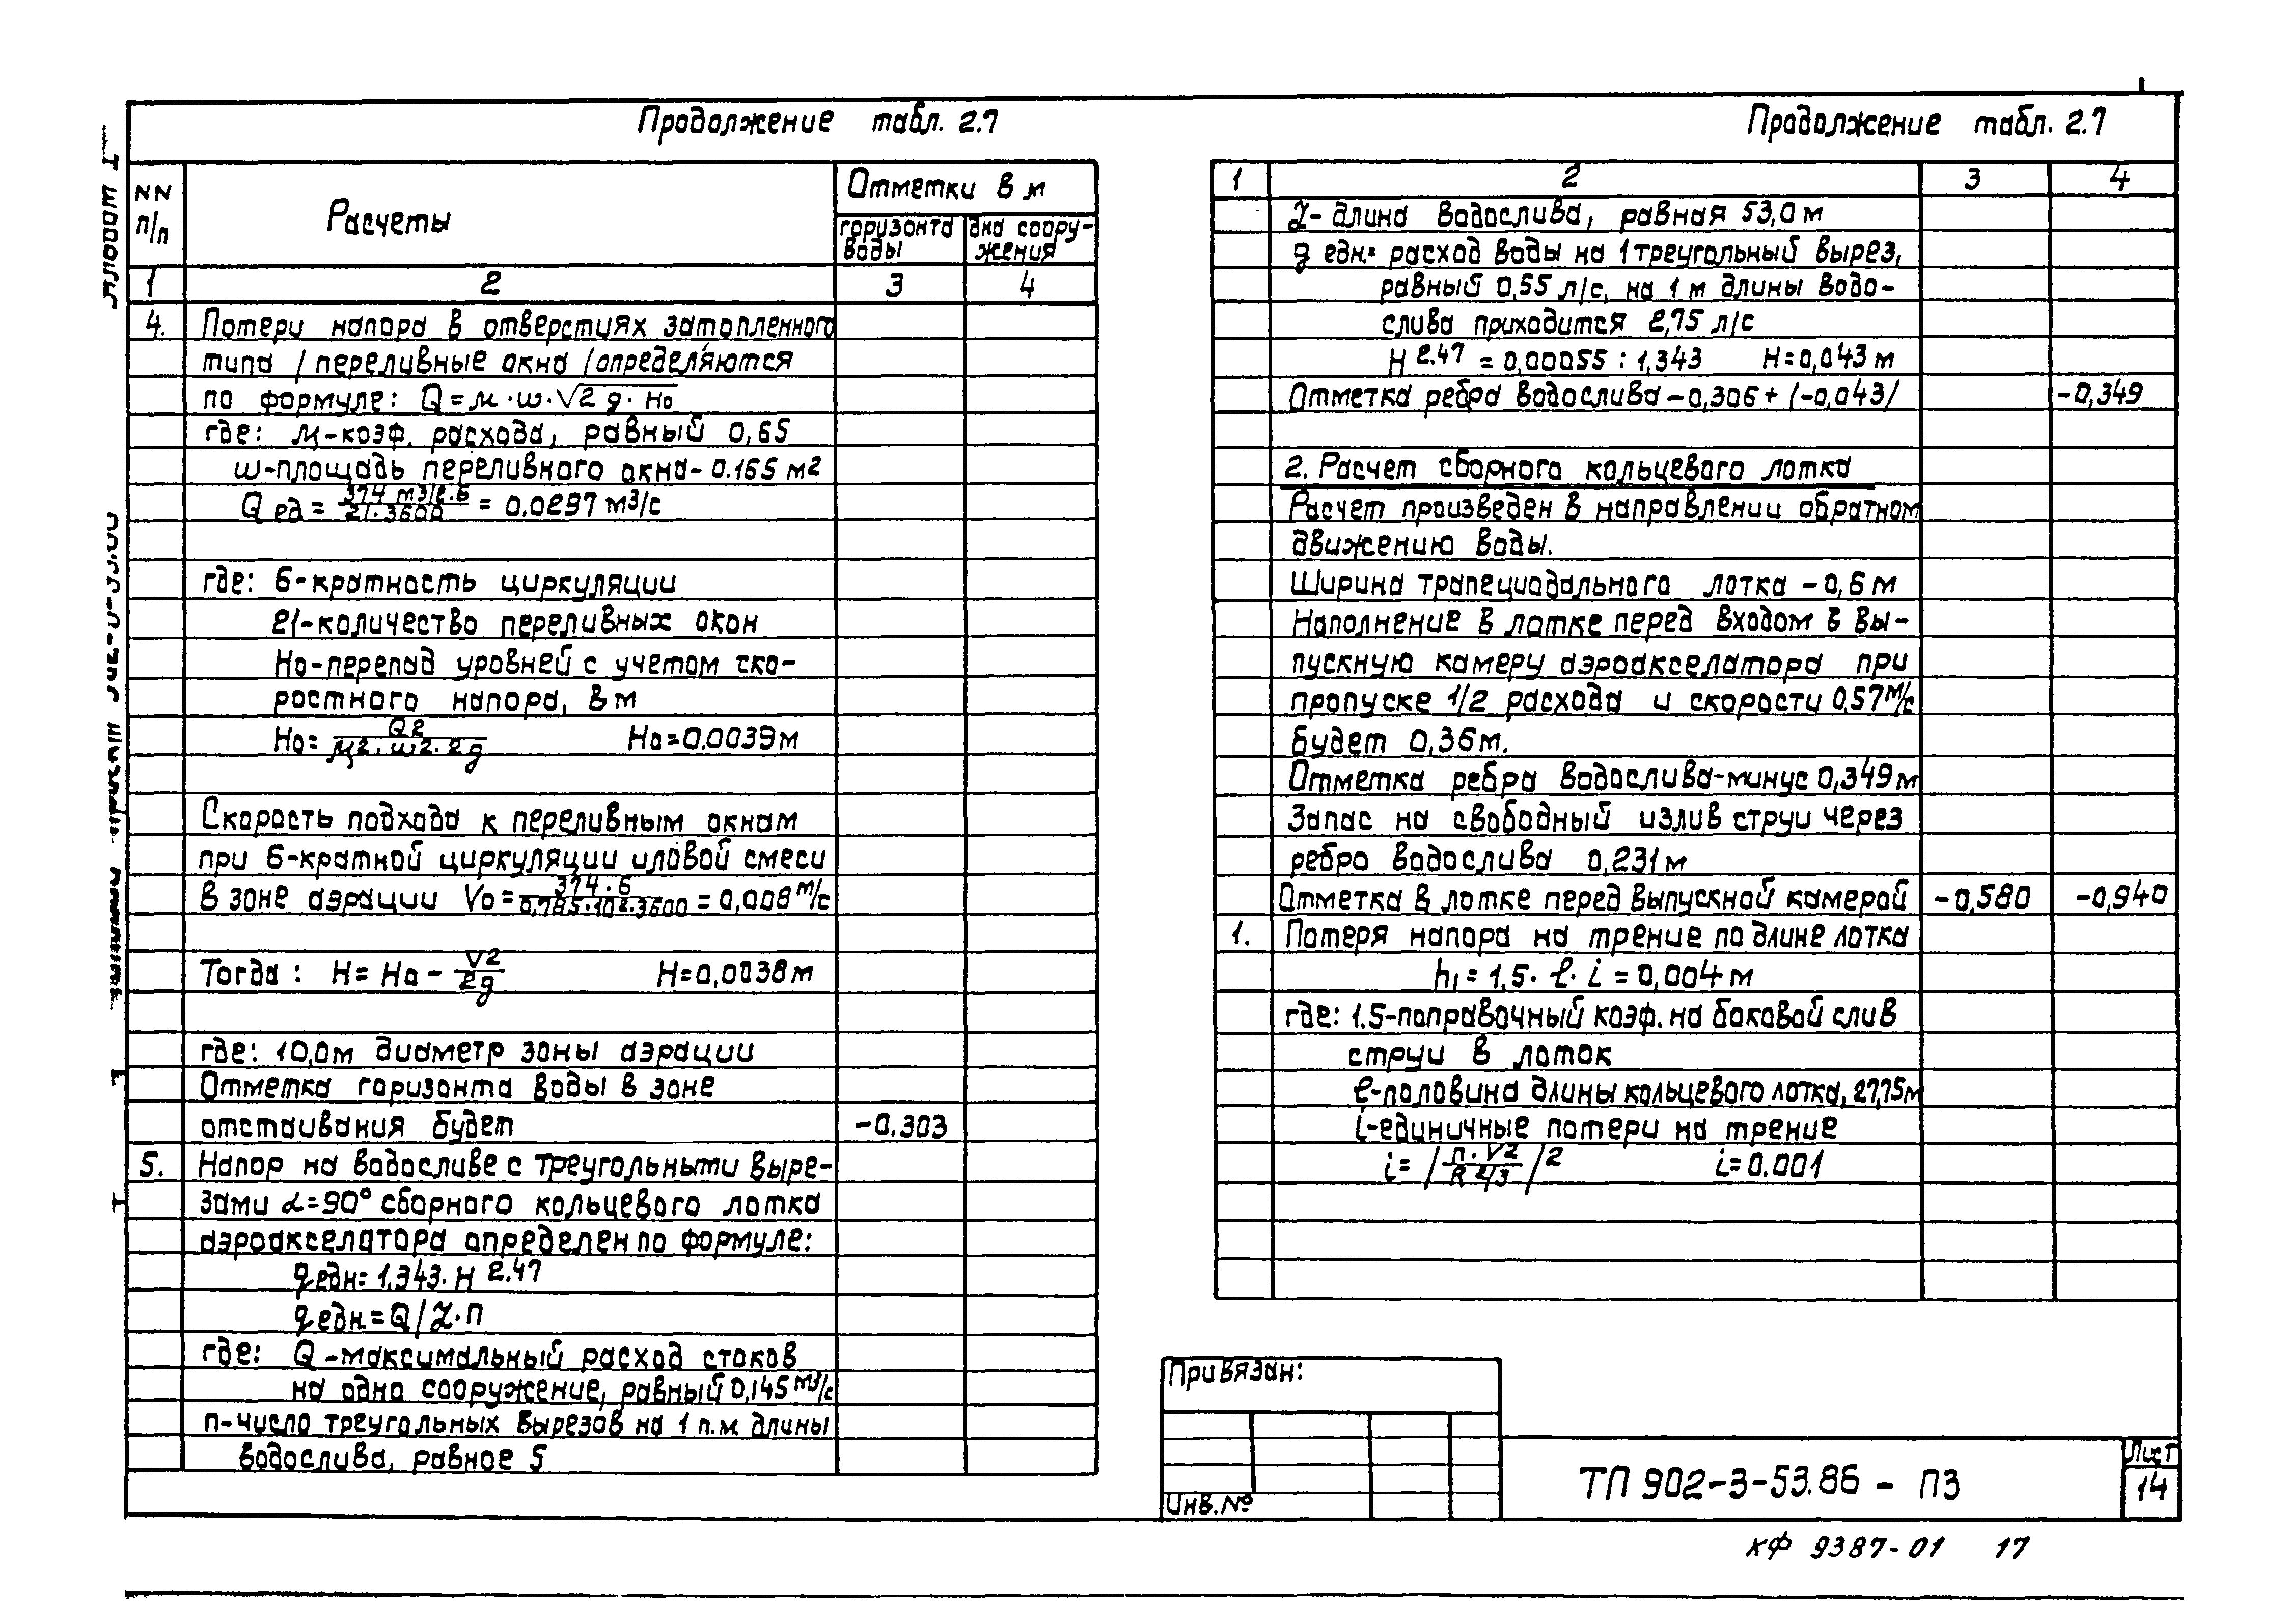 Продолжение табл. 2.7
NN п/п
Расчеты
Отметки в м
горизонта воды
дна соору-
жения
1 2 3 4
4. Потери напора в отверстиях затопленного
типа / переливные окна / определяются
по формуле: Q = м · ω · √2 g · Но
где: м-коэф. расхода, равный 0,65
ω-площадь переливного окна - 0.165 м2
Q ед = 374 м3/г.6 / 21·3600 = 0,0297 м3/с
где: 6-кратность циркуляции
21-количество переливных окон
Но-перепад уровней с учетом ско-
ростного напора, в м
Но = Q2 / м2·ω2·2g Но=0.0039м
Скорость подхода к переливным окнам
при 6-кратной циркуляции иловой смеси
в зоне аэрации Vо = 374·6 / 0,785·102·3600 = 0,008 м/с
Тогда: Н = Но - V2/2g Н=0,0038м
где: 10,0м диаметр зоны аэрации
Отметка горизонта воды в зоне
отстаивания будет -0.303
5. Напор на водосливе с треугольными выре-
зами α=90° сборного кольцевого лотка
аэроакселатора определен по формуле:
q едн= 1,343·Н 2.47
q едн.= Q/Z·п
где: Q-максимальный расход стоков
на одно сооружение, равный 0,145 м3/с
п-число треугольных вырезов на 1 п.м. длины
водослива, равное 5
Продолжение табл. 2.7
1 2 3 4
Z- длина водослива, равная 53,0 м
q едн.- расход воды на 1 треугольный вырез,
равный 0,55 л/с, на 1 м длины водо-
слива приходится 2,75 л/с
Н 2.47 = 0,00055 : 1,343 Н=0,043 м
Отметка ребра водослива -0,306 + /-0,043/ -0,349
2. Расчет сборного кольцевого лотка
Расчет произведен в направлении обратном
движению воды.
Ширина трапециадального лотка - 0,6 м
Наполнение в лотке перед входом в вы-
пускную камеру аэроакселатора при
пропуске 1/2 расхода и скорости 0,57 м/с
будет 0,36 м.
Отметка ребра водослива-минус 0,349 м
Запас на свободный излив струи через
ребро водослива 0,231 м
Отметка в лотке перед выпускной камерой -0,580 -0,940
1. Потеря напора на трение по длине лотка
h1 = 1,5· ℓ· i = 0,004 м
где: 1.5-поправочный коэф. на боковой слив
струи в лоток
ℓ-половина длины кольцевого лотка, 27,75м
i-единичные потери на трение
i = / п·V2 / R 2/3 /2 i=0.001
Привязан:
Инв.№
ТП 902-3-53.86 - ПЗ
Лист
14
КФ 9387-01 17